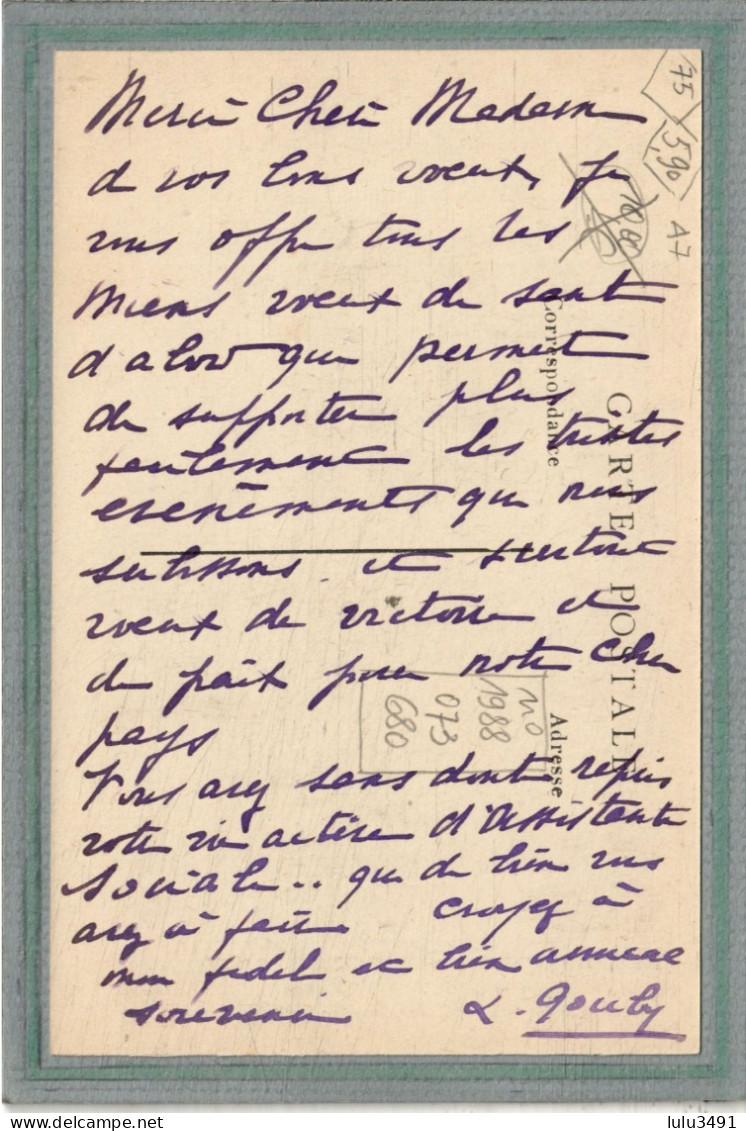 Merci Chère Madame
de vos bons voeux, Je
vous offre tous les
Miens voeux de santé
d'abord qui permet
de supporter plus
facilement les tristes
evenèments que nous
subissons et surtout
voeux de victoire et
de paix pour notre cher
pays
Vous avez sans doute repris
votre vie active d'Assistante
Sociale.. que de bien vous
avez à faire croyez à
mon fidel et bien amical
souvenir L. Gouby
CARTE POSTALE
Correspondance
Adresse
75
5,90
A7
NO
1988
073
680
lulu3491